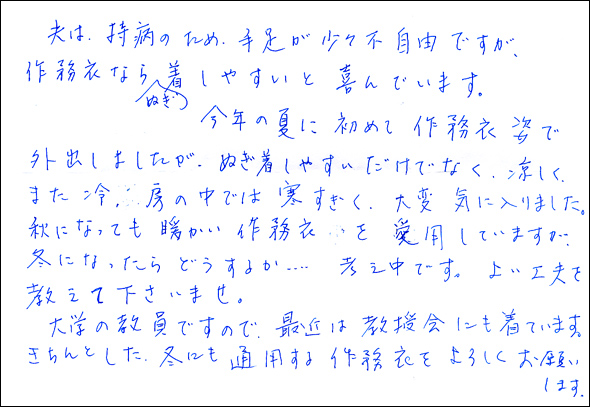 夫は、持病のため、手足が少々不自由ですが、
作務衣なら着しやすいと喜んでいます。
ぬぎ
今年の夏に初めて作務衣姿で
外出しましたが、ぬぎ着しやすいだけでなく、涼しく、
また冷房の中では寒すぎく、大変気に入りました。
秋になっても暖かい作務衣を愛用していますが、
冬になったらどうするか…… 考え中です。よい工夫を
教えて下さいませ。
大学の教員ですので、最近は教授会にも着ています。
きちんとした、冬にも通用する作務衣をよろしくお願い
します。